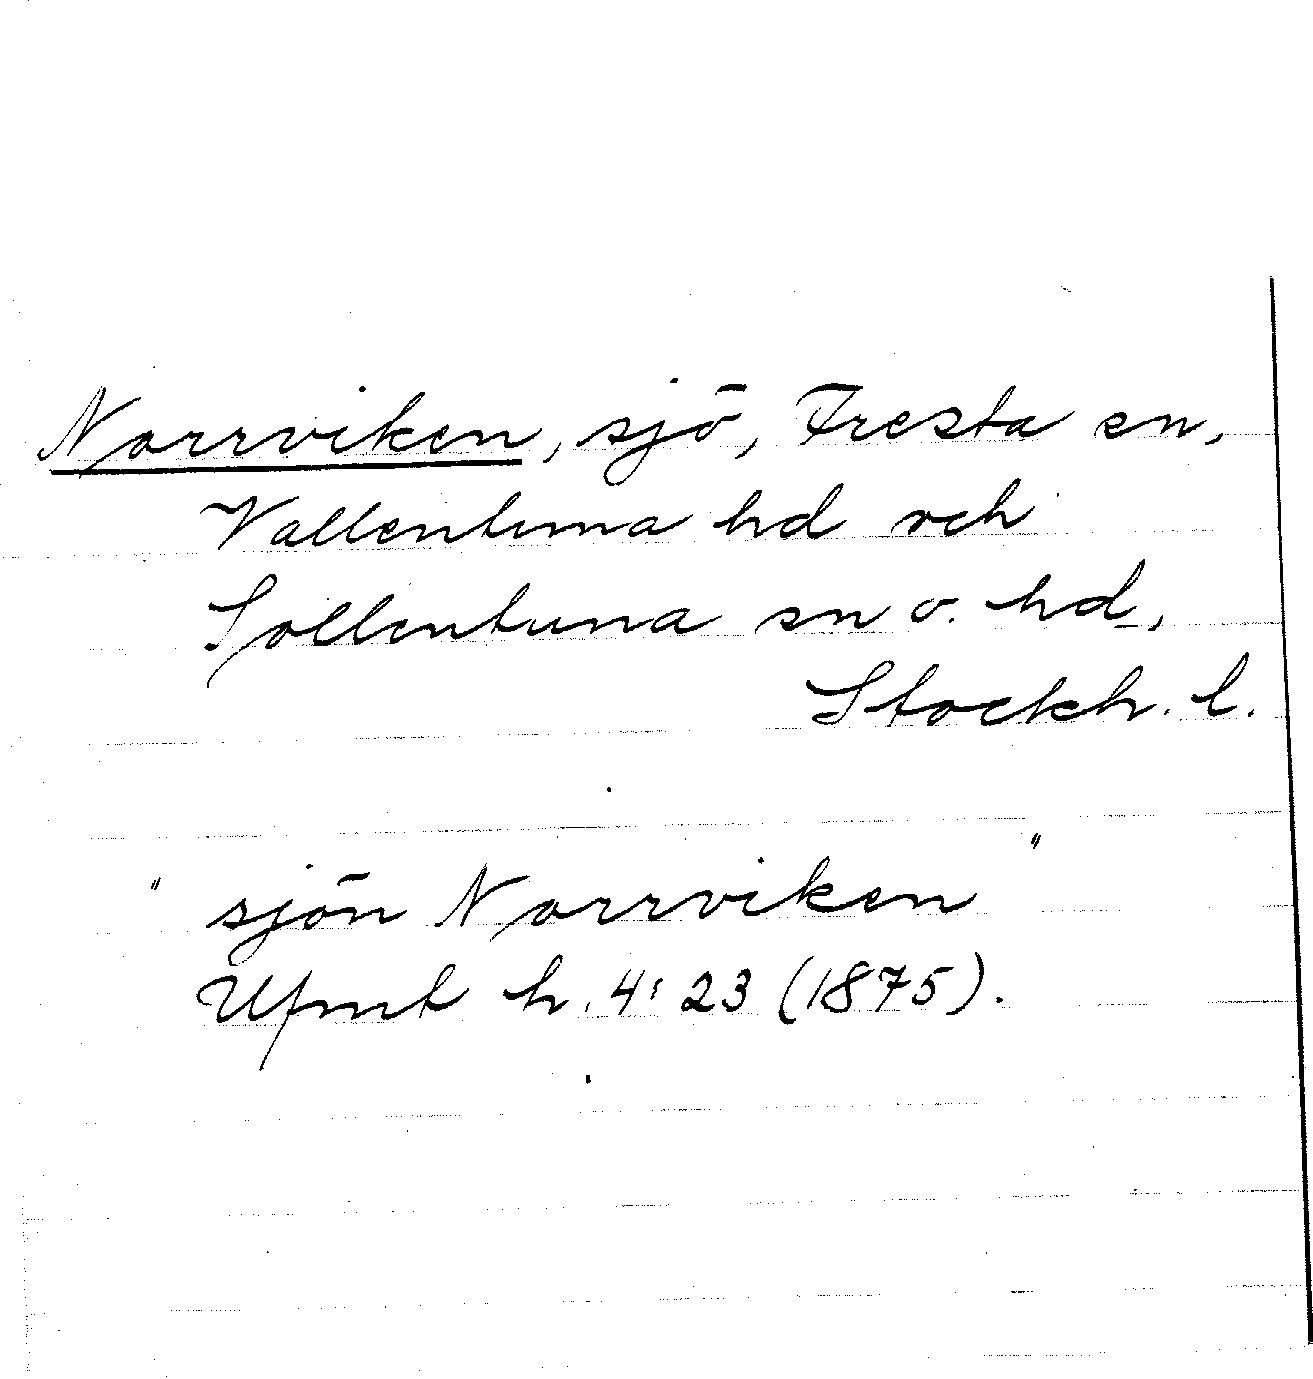 Norrviken, sjö, Fresta sn,
Vallentuna hd och
Sollentuna sn o. hd,
Stockh. l.
" sjön Norrviken "
Ufmt h. 4: 23 (1875).